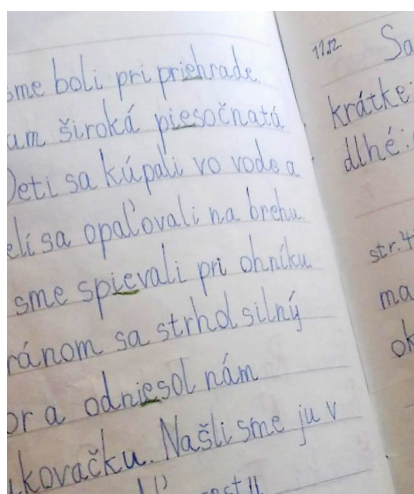 sme boli pri priehrade.
am široká piesočnatá
Deti sa kúpali vo vode a
eli sa opaľovali na brehu.
sme spievali pri ohníku.
ránom sa strhol silný
or a odniesol nám
kovačku. Našli sme ju v
Sa
krátke:
dlhé:
str. 4
ma
ok